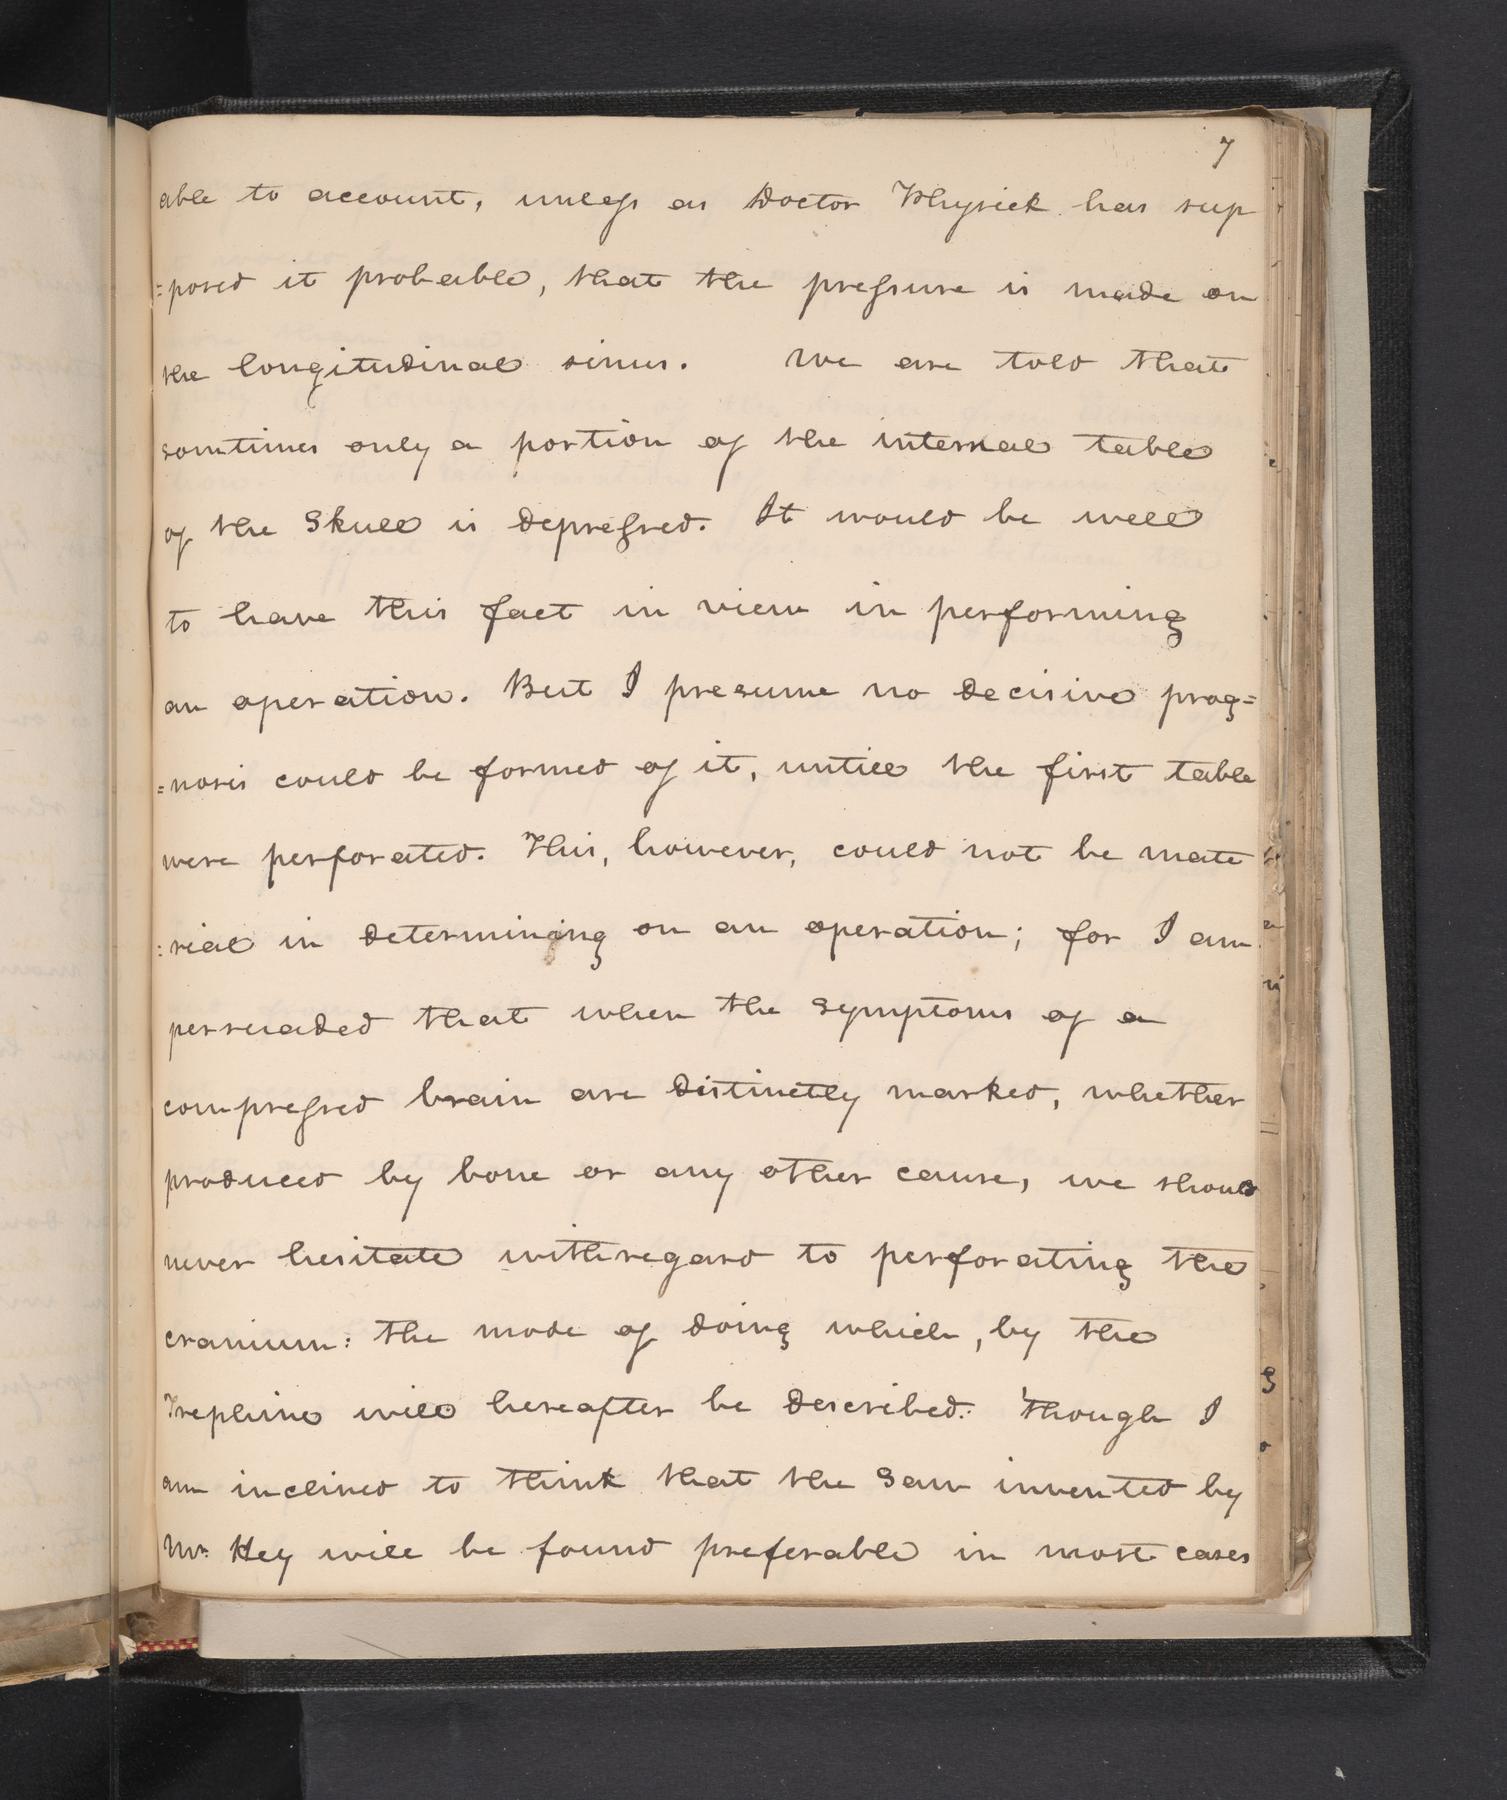 7
able to account, unless as Doctor Physick has sup
=posed it probable, that the pressure is made on
the longitudinal sinus. We are told that
somtimes only a portion of the internal table
of the Skull is depressed. It would be well
to have this fact in view in performing
an operation. But I presume no decisive prog=
=nosis could be formed of it, untill the first table
were perforated. This, however, could not be mate
=rial in determining on an operation; for I am
persuaded that when the symptoms of a
compressed brain are distinctly marked, whether
produced by bone or any other cause, we should
never hesitate withregard to perforating the
cranium: the mode of doing which, by the
Trephine will hereafter be described: 'though I
am inclined to think that the Saw invented by
Mr. Hey will be found preferable in most cases